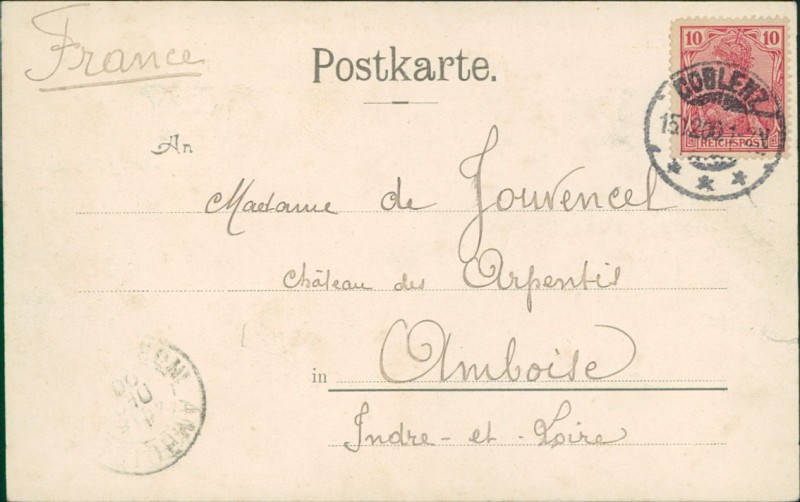 France
Postkarte.
10 10
REICHSPOST
COBLENZ
An
Madame de Jouvencel
Château des Arpentis
in Amboise
Indre - et - Loire